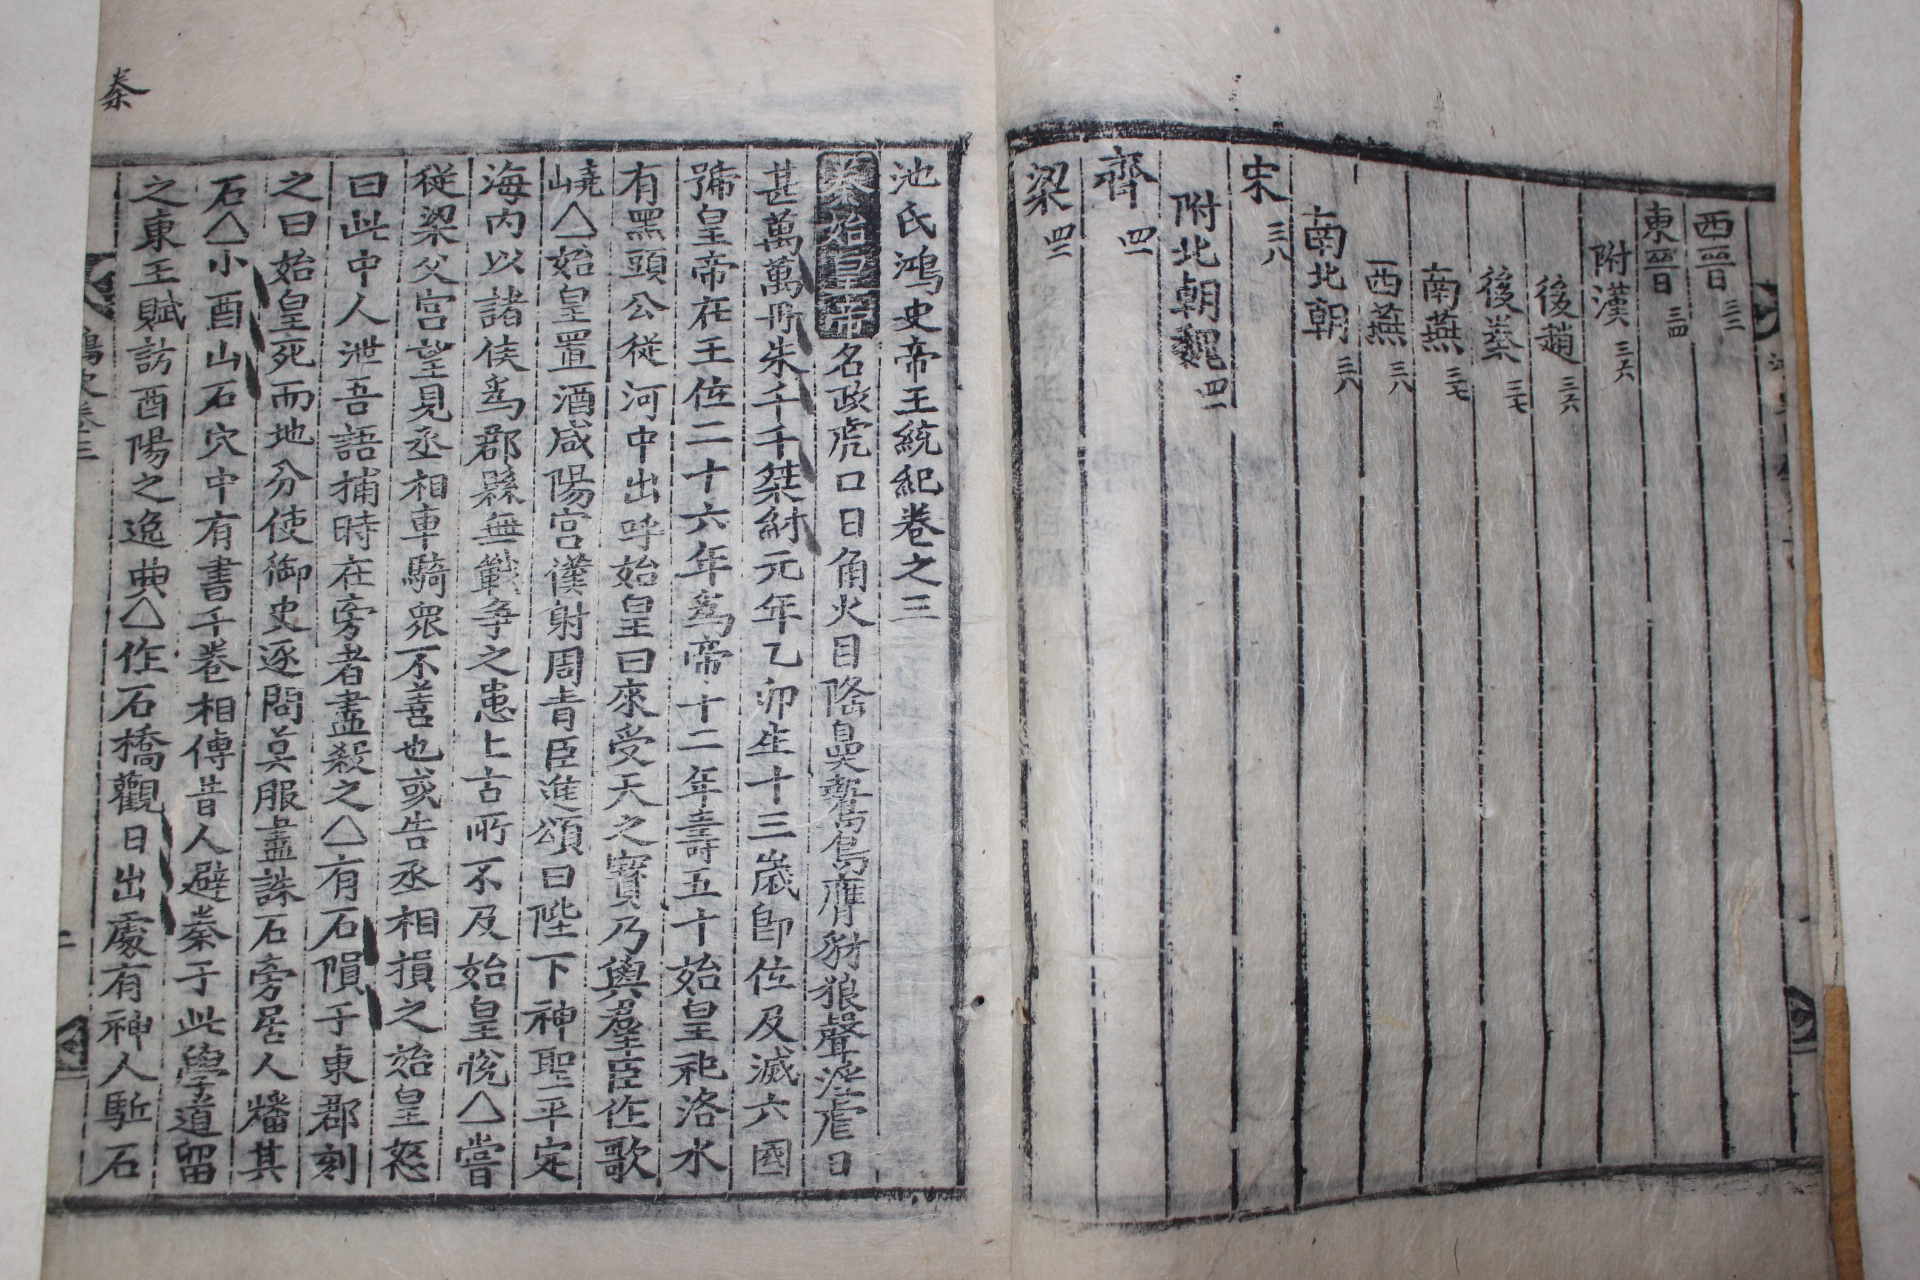 西晉 三三
東晉 三四
附漢 三六
後趙 三六
後秦 三七
南燕 三七
西燕 三八
南北朝 三八
宋 三八
附北朝魏 四一
齊 四一
梁 四二
池氏鴻史帝王統紀卷之三
秦始皇帝 名政虎口日角火目隆鼻鷙鳥膺豺狼聲淫虐日
甚萬萬於朱千千桀紂元年乙卯生十三歲卽位及滅六國
號皇帝在王位二十六年爲帝十二年壽五十始皇祀洛水
有黑頭公從河中出呼始皇曰來受天之寶乃與羣臣作歌
嶢△始皇置酒咸陽宮僕射周靑臣進頌曰陛下神聖平定
海內以諸侯爲郡縣無戰爭之患上古所不及始皇悅△嘗
從梁父宮望見丞相車騎衆不善也或告丞相損之始皇怒
曰此中人泄吾語捕時在旁者盡殺之△有石隕于東郡刻
之曰始皇死而地分使御史逐問莫服盡誅石旁居人燔其
石△小酉山石穴中有書千卷相傳昔人避秦于此學道留
之東王賦訪酉陽之逸典△作石橋觀日出處有神人駈石
鴻史卷三
秦